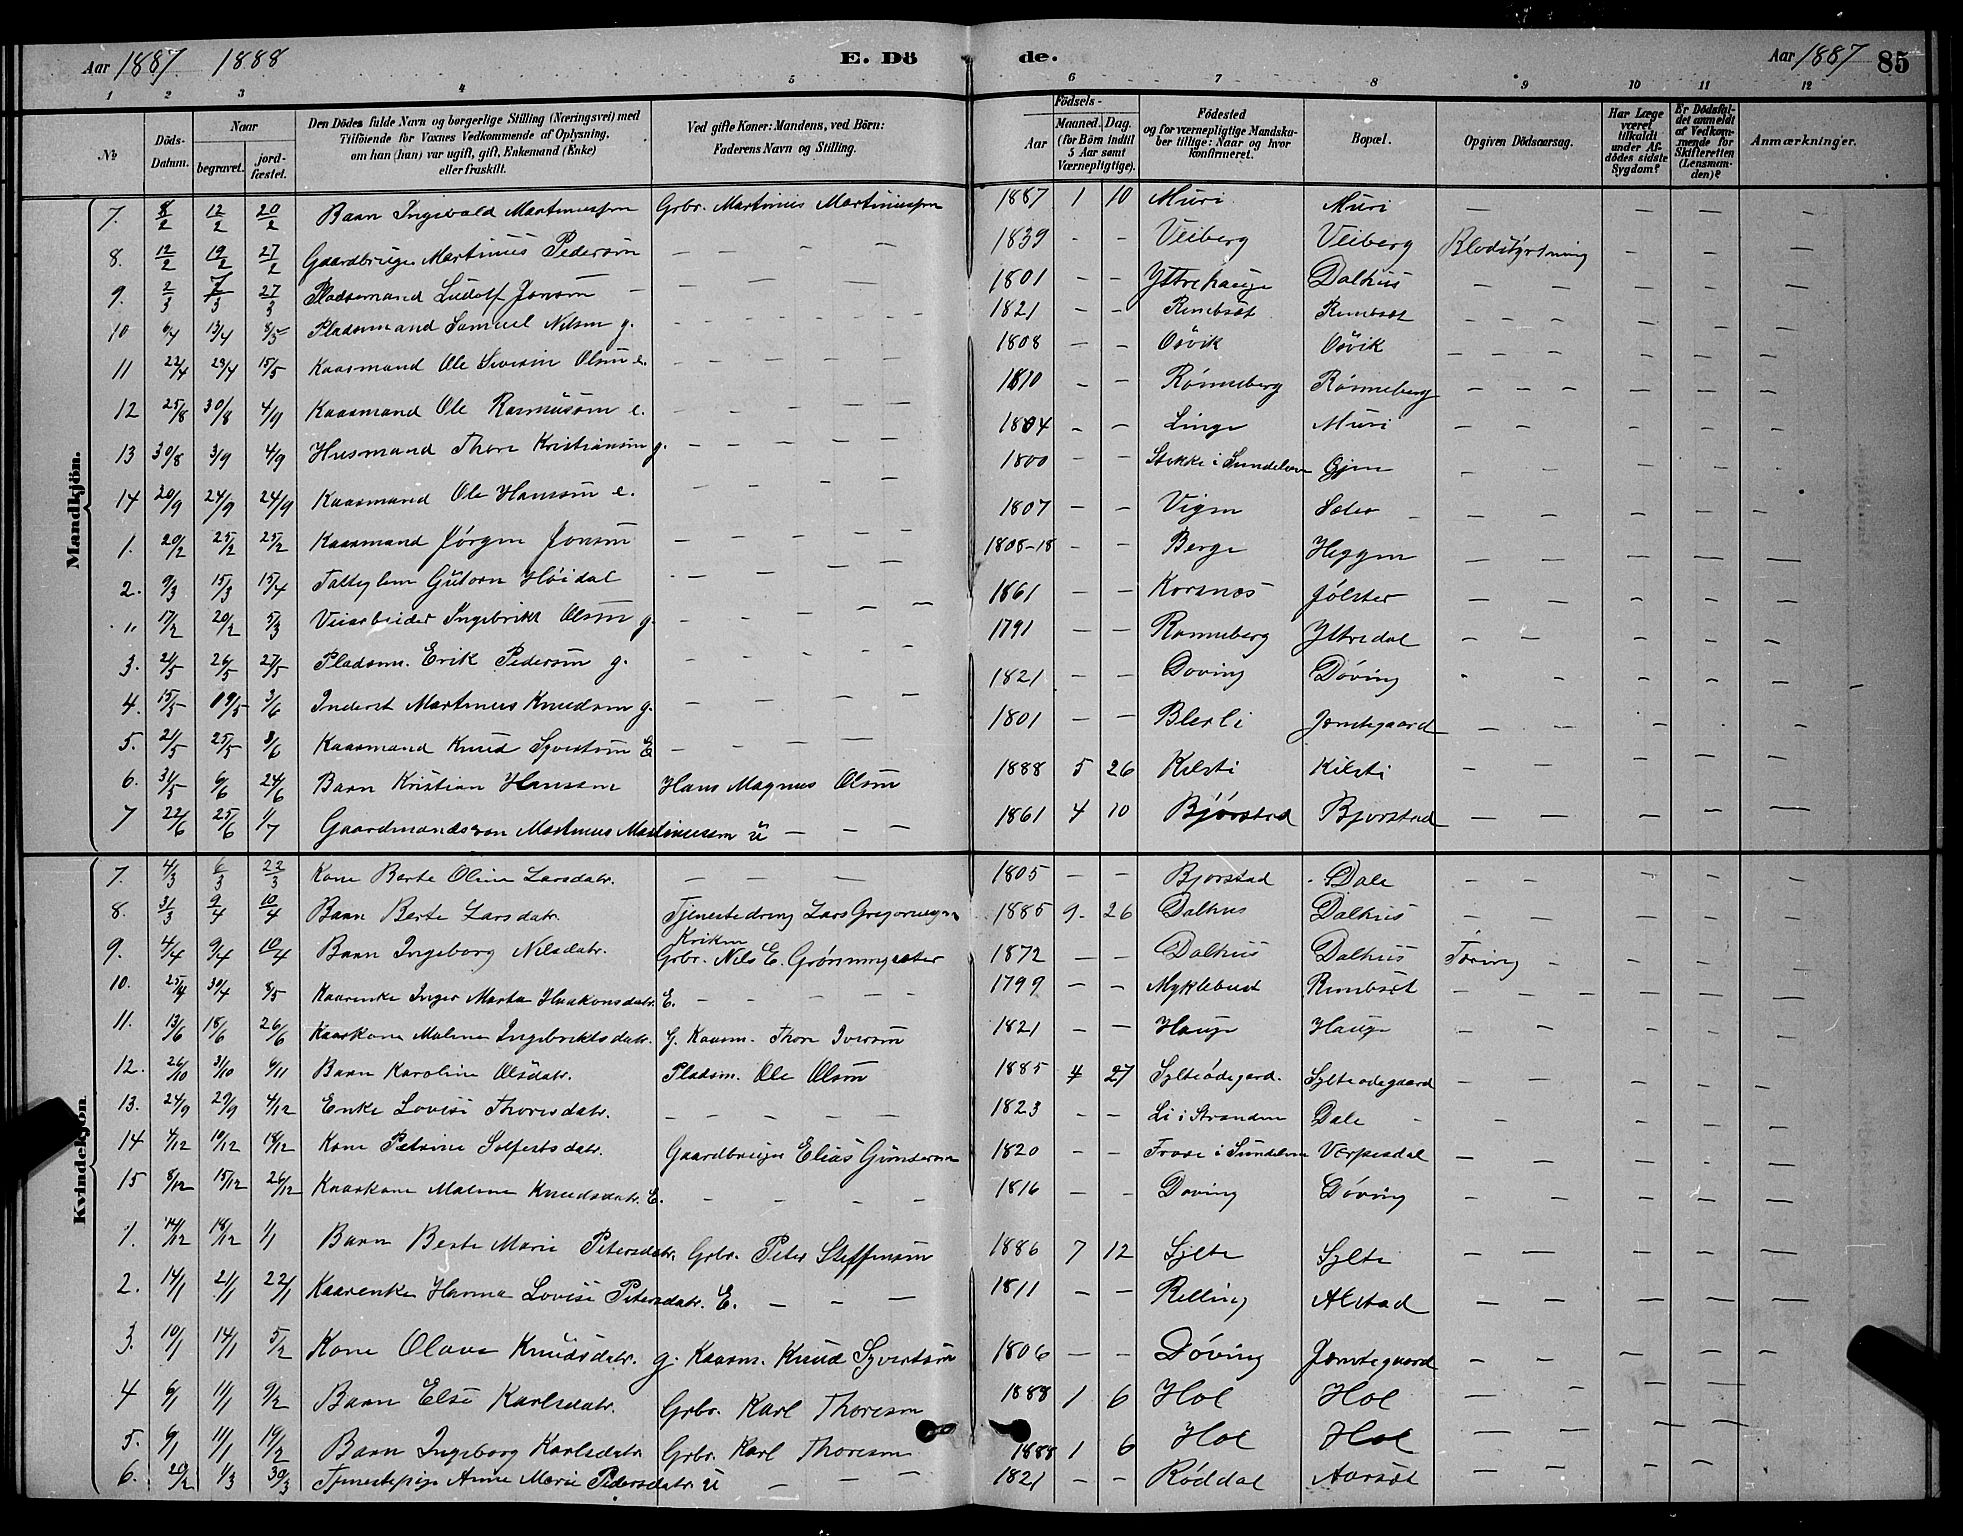 Aar 1887 1888 E. Dö de. Aar 1887 85
1 2 3 4 5 6 7 8 9 10 11 12
No
Döds-Datum.
Naar
begravet.
jord-fæstet.
Den Dödes fulde Navn og borgerlige Stilling (Næringsvei) med
Tilföiende for Voxnes Vedkommende af Oplysning,
om han (hun) var ugift, gift, Enkemand (Enke)
eller fraskilt.
Ved gifte Koner: Mandens, ved Börn:
Faderens Navn og Stilling.
Födsels-
Aar
Maaned. Dag.
(for Börn indtil
5 Aar samt
Værnepligtige).
Födested
og for værnepligtige Mandska-
ber tillige: Naar og hvor
konfirmeret.
Bopæl.
Opgiven Dödsaarsag.
Har Læge
været
tilkaldt
under Af-
dödes sidste
Sygdom?
Er Dödsfal-
det anmeldt
af Vedkom-
mende for
Skifteretten
(Lensman-
den)?
Anmærkninger.
Mandkjön.
7. 8/2 12/2 20/2 Barn Ingevald Martinussen Grbr. Martinus Martinussen 1887 1 10 Muri Muri — — — —
8. 12/2 19/2 27/2 Gaardbruger Martinus Pedersen — — — — 1839 - - Veiberg Veiberg Blodstyrtning — — —
9. 2/3 7/3 27/3 Pladsemand Ludolf Jonsen — — — — 1801 - - Yttrehauge Dalhus — — —
10 6/4 13/4 8/5 Pladsmand Samuel Nilsen g. 1821 - - Rembsøt Rembsøt — — —
11 22/4 29/4 15/5 Kaarmand Ole Siversen Olsen e. 1808 - - Osvik Osvik — — —
12 25/8 30/8 4/9 Kaarmand Ole Rasmussen e. 1810 - - Rønneberg Rønneberg — — —
13 30/8 3/9 4/9 Husmand Thore Kristiansen g. 1804 - - Linge Muri — — —
14 20/9 24/9 24/9 Kaarmand Ole Hansen e. 1800 - - Stekke i Sundelven — — —
1. 20/2 25/2 25/2 Kaarmand Jørgen Jonsen — — — 1807 - - Vigen — — —
2. 9/3 15/3 15/4 Guttorm Høidal 1808-18 - - Berge Heggen — — —
" 17/2 20/2 5/3 Veiarbeider Ingebrikt Olsen g. 1861 - - Korsnes Jølster — — —
3. 21/5 26/5 27/5 Pladsm. Erik Pedersen g. 1791 - - Ronneberg Yttredal — — —
4. 15/5 19/5 3/6 Inderst Martinus Knudsen g. 1821 - - Døving Døving — — —
5. 21/5 25/5 3/6 Kaarmand Knud Syvertsen E 1801 - - Blerli Jemtegaard — — —
6. 31/5 6/6 24/6 Barn Kristian Hansen Hans Magnus Olsen 1888 5 26 Kilsti Kilsti — — —
7 22/6 25/6 1/7 Gaardmandsson Martinus Martinussen u — — — 1861 4 10 Bjørstad Bjorstad — — —
Kvindekjön.
7. 4/3 6/3 22/3 Kone Berte Oline Larsdatr. — — — 1805 - - Bjorstad Dale — — —
8. 31/3 9/4 10/4 Barn Berte Larsdatr. Tjenestedreng Lars Gregoriussen 1885 9 26 Dalhus Dalhus — — —
9. 4/4 9/4 10/4 Barn Ingeborg Nilsdatr. Grbr. Nils E. Grønningsæter 1872 - - Dalhus Dalhus Tæring — — —
10. 25/4 30/4 8/5 Kaarenke Inger Marta Haakonsdatr. E. — — — 1799 - - Myklebust Rembsøt — — —
11. 13/6 18/6 26/6 Kaarkone Malene Ingebriktsdatr. g. Kaarm. Thore Iversen 1821 - - Hauge Hauge — — —
12. 26/10 31/10 6/11 Barn Karoline Olsdatr. Pladsm. Ole Olsen 1885 4 27 Sylteødegard. Sylteodegaard — — —
13. 24/9 29/9 4/12 Enke Lovise Thoresdatr. — — — 1823 - - Li i Stranden Dale — — —
14 4/12 10/12 18/12 Kone Petrine Solfestsdatr. Gaardbruger Elias Gundersen 1820 - - i Sundelven Verpesdal — — —
15 8/12 15/12 26/12 Kaarkone Malene Knudsdatr. E. — — — 1816 - - Doving Døving — — —
1. 14/12 18/12 1/1 Barn Berte Marie Petersdatr. Grbr. Peter Steffensen 1886 7 12 Sylte Sylte — — —
2. 14/1 21/1 22/1 Kaarenke Hanna Lovise Petersdatr. E. — — — 1811 - - Relling Alstad — — —
3. 10/1 14/1 5/2 Kone Olava Knudsdatr. g. Kaarm. Knud Syvertsen 1806 - - Døving Jemtegaard — — —
4 6/1 11/1 9/2 Barn Else Karlsdatr. Grbr. Karl Thoresen 1888 1 6 Hol Hol — — —
5. 9/1 11/1 19/2 Barn Ingeborg Karlsdatr Grbr. Karl Thoresen 1888 1 6 Hol Hol — — —
6. 20/2 1/3 30/3 Tjenestepige Anne Marie Pedersdatr. u — — — 1821 - - Røddal Aarsøt — — —